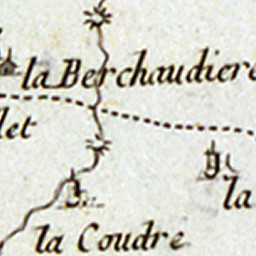 la Berchaudiere
let
la
la Coudre